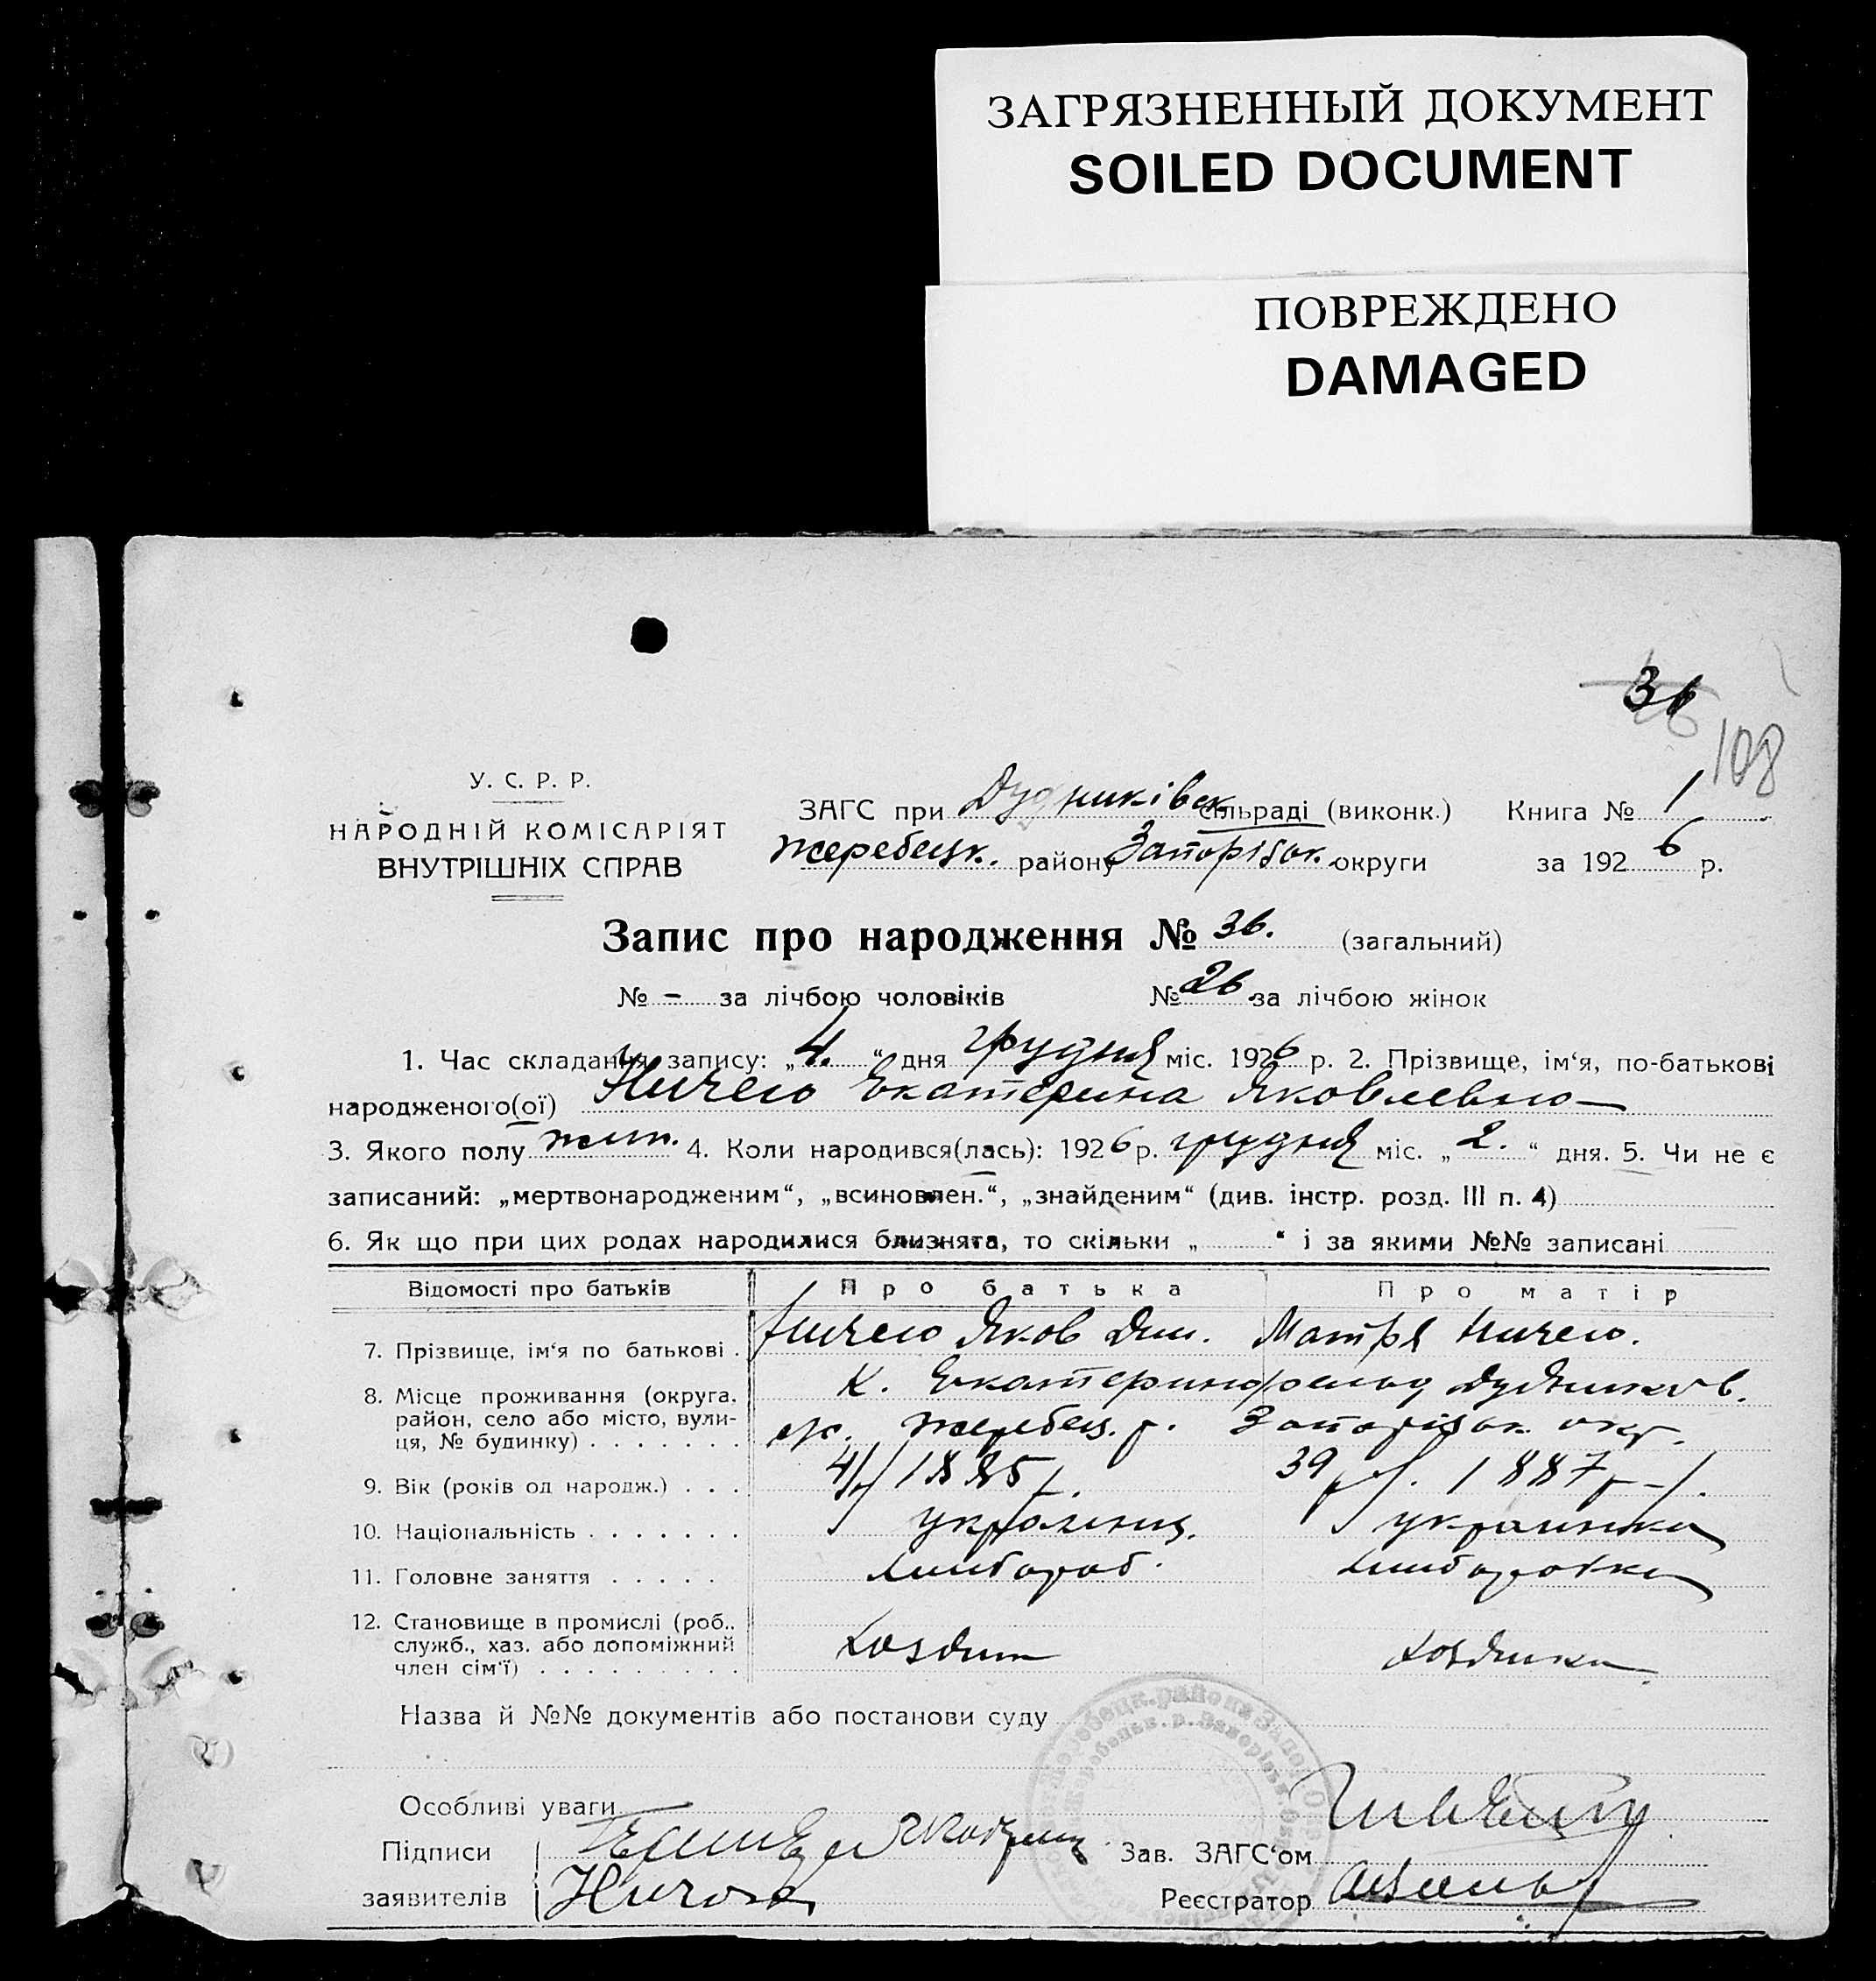 ЗАГРЯЗНЕННЫЙ ДОКУМЕНТ
SOILED DOCUMENT
ПОВРЕЖДЕНО
DAMAGED
36
108
У. С. Р. Р.
НАРОДНІЙ КОМІСАРІЯТ
ВНУТРІШНІХ СПРАВ
ЗАГС при Дудниківськ сільраді (виконк.) Книга № 1
Жеребецьк. району Запорізьк. округи за 1926 р.
Запис про народження № 36. (загальний)
№ – за лічбою чоловіків № 26 за лічбою жінок
1. Час складання запису: „4.“ дня грудня міс. 1926 р. 2. Прізвище, ім‘я, по-батькові
народженого(ої) Ничею Екатерина Яковлевна
3. Якого полу жін. 4. Коли народився(лась): 1926 р. грудня міс. „2.“ дня. 5. Чи не є
записаний: „мертвонародженим“, „всиновлен.“, „знайденим“ (див. інстр. розд. III п. 4)
6. Як що при цих родах народилися близнята, то скільки „ “ і за якими №№ записані
Відомості про батьків Про батька Про матір
7. Прізвище, ім‘я по батькові . Ничею Яков Дми. Матря Ничею.
8. Місце проживання (округа, район, село або місто, вулиця, № будинку) . . . . . . . К. Екатеринфельд Дудников.
с/р. Жеребец. р. Запорізьк окр.
9. Вік (років од народж.) . . . 41 р/1885 р. 39 р/. 1887 р-/.
10. Національність . . . . . . . українц. українка
11. Головне заняття . . . . . хлибороб. хлиборобка
12. Становище в промислі (роб.. служб., хаз. або допоміжний член сім‘ї) . . . . . . . . .
Назва й №№ документів або постанови суду
Особливі уваги
Підписи
заявителів
Зав. ЗАГС‘ом
Реєстратор